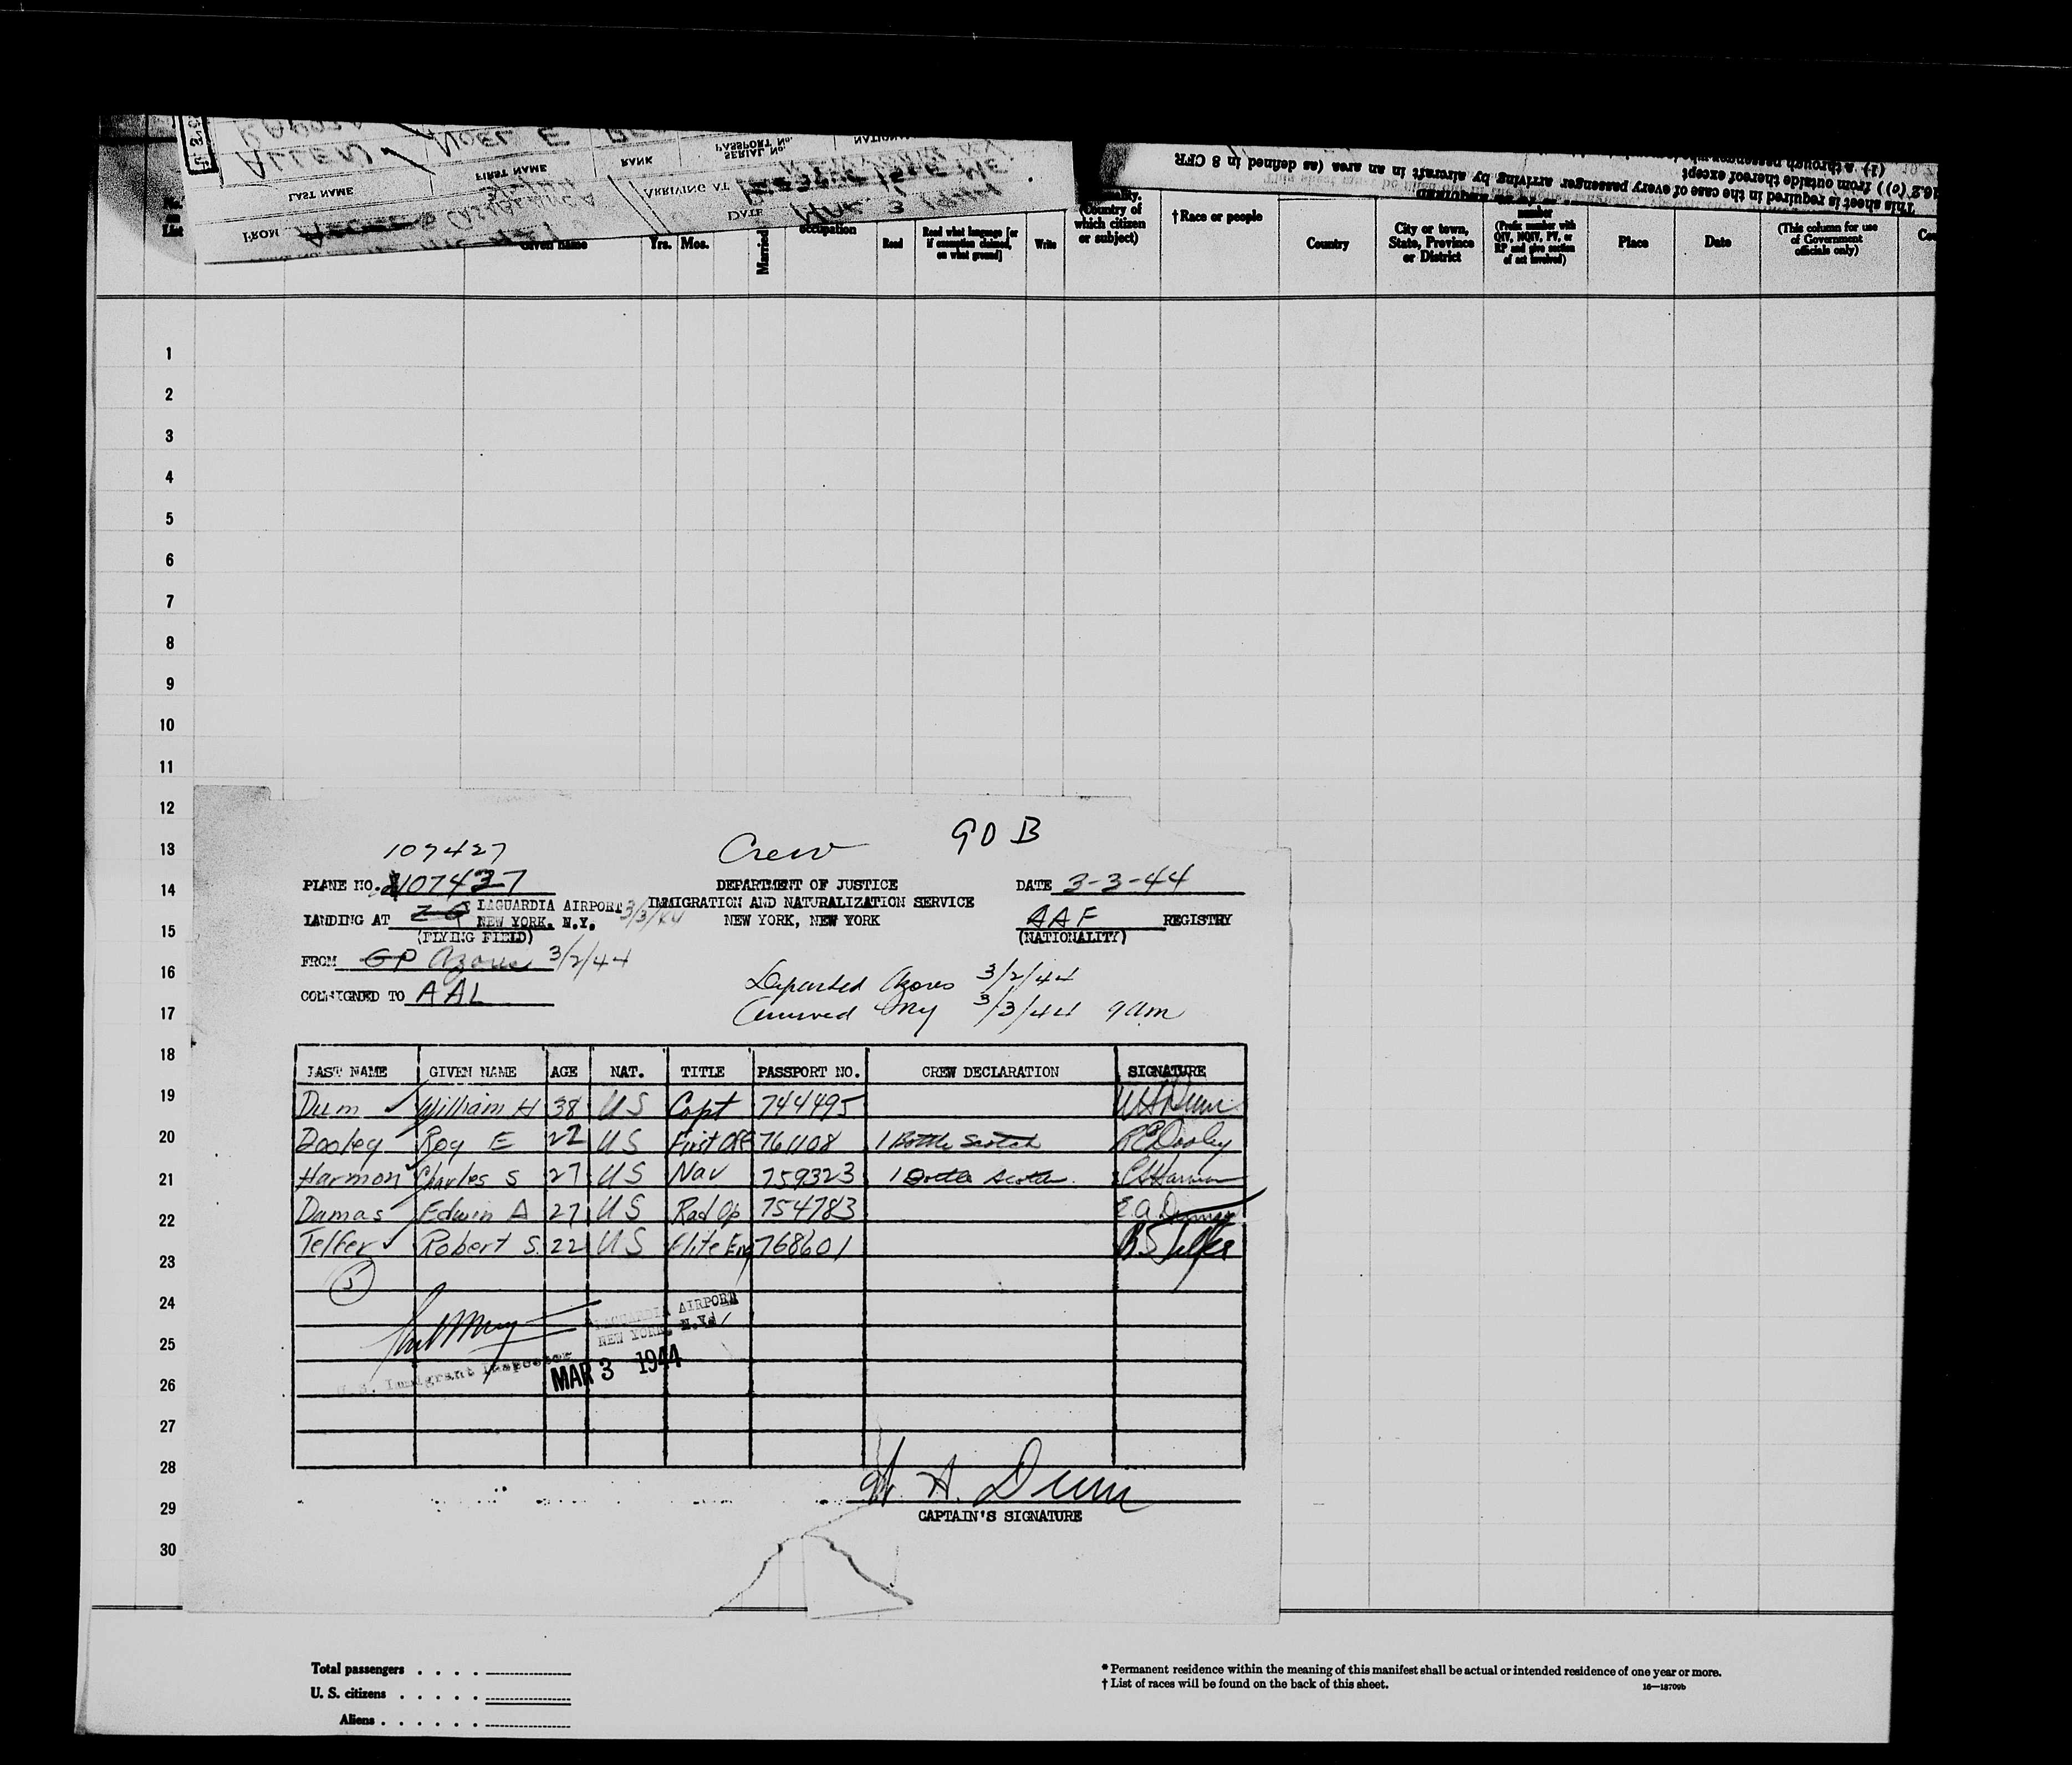 ALLEN NOEL E
LAST NAME FIRST NAME RANK SERIAL No. PASSPORT No.
FROM CASABLANCA ARRIVING AT
DATE MAR 3 1944
This sheet is required in the case of every passenger arriving by aircraft in an area (as defined in 8 CFR
(o)) from outside thereof except
No. on List
Given name
Yrs. Mos.
Married
occupation
Read
Read what language [or if exemption claimed, on what ground]
Write
(Country of which citizen or subject)
†Race or people
Country
City or town, State, Province or District
number
(Prefix number with QIV, NQIV, PV, or RP and give section of act involved)
Place
Date
(This column for use of Government officials only)
1
2
3
4
5
6
7
8
9
10
11
12
13
14
15
16
17
18
19
20
21
22
23
24
25
26
27
28
29
30
107427 Crew 90 B
PLANE NO. 107437 DEPARTMENT OF JUSTICE DATE 3-3-44
LANDING AT LAGUARDIA AIRPORT 3/3/44 IMMIGRATION AND NATURALIZATION SERVICE AAF REGISTRY
NEW YORK, N.Y. NEW YORK, NEW YORK
(FLYING FIELD) (NATIONALITY)
FROM GP Azores 3/2/44
Departed Azores 3/2/44
CONSIGNED TO AAL
Arrived NY 3/3/44 9 am
LAST NAME GIVEN NAME AGE NAT. TITLE PASSPORT NO. CREW DECLARATION SIGNATURE
Dunn William H 38 US Capt 744495 W H Dunn
Dooley Roy E 22 US First Off 761108 1 Bottle Scotch R E Dooley
Harmon Charles S 27 US Nav 759323 1 Bottle Scotch C S Harmon
Dumas Edwin A 27 US Rad Op 754783 E. A. Dumas
Telfer Robert S. 22 US Flite Eng 768601 R S Telfer
5
LAGUARDIA AIRPORT
NEW YORK, N.Y.
U. S. Immigrant Inspector
MAR 3 1944
W. H. Dunn
CAPTAIN'S SIGNATURE
Total passengers . . . .
U. S. citizens . . . . .
Aliens . . . . . .
* Permanent residence within the meaning of this manifest shall be actual or intended residence of one year or more.
† List of races will be found on the back of this sheet. 16—18709b